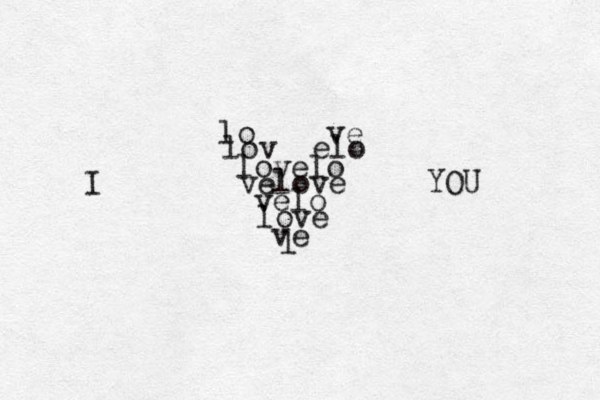 lo ve
lov elo
lovelo
I velove YOU
velo
love
ve
l